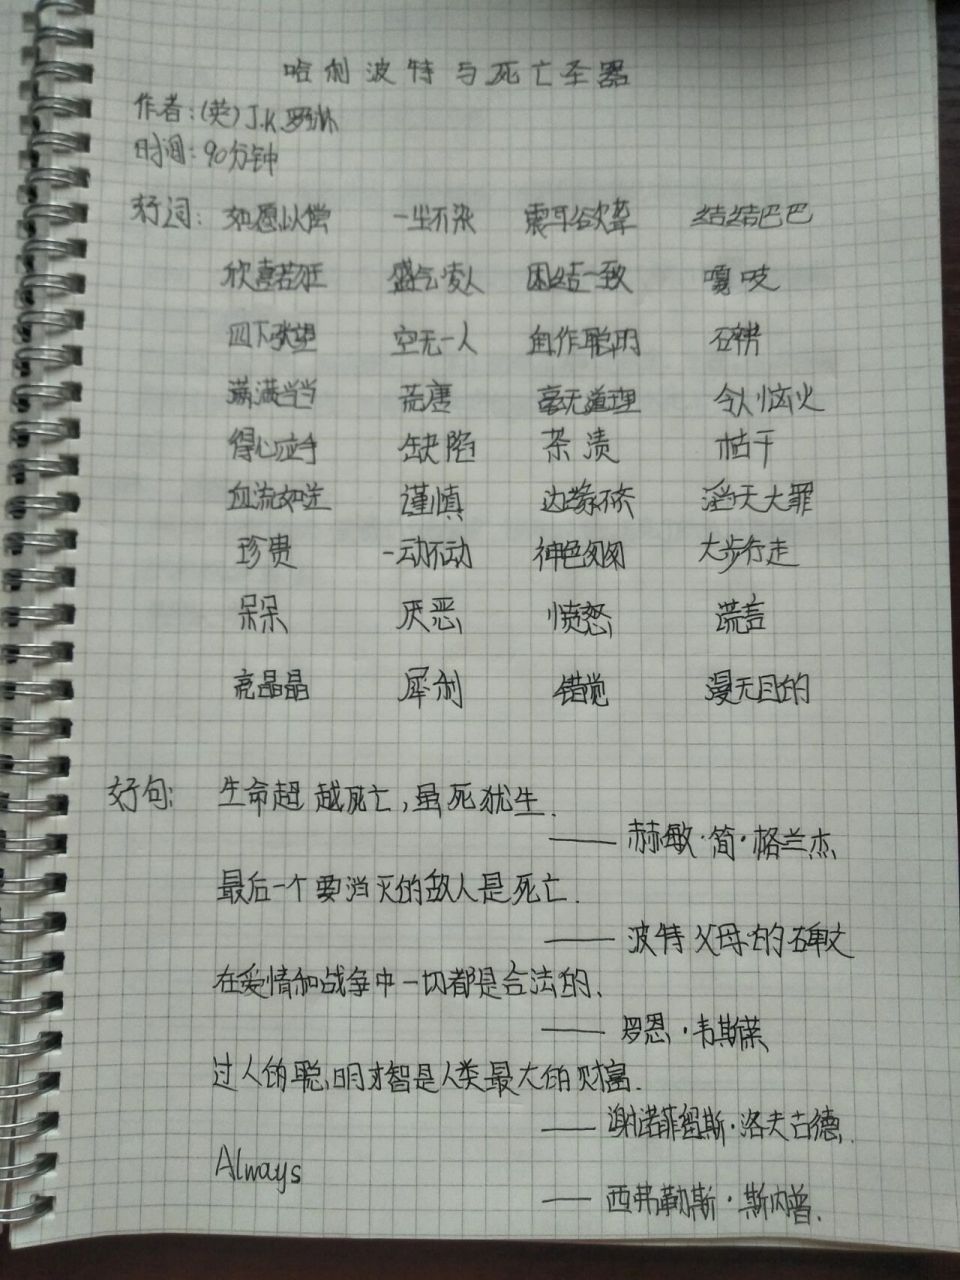 哈利波特与死亡圣器
作者:(英)J.K.罗琳
时间:90分钟
好词: 如愿以偿 一尘不染 震耳欲聋 结结巴巴
欣喜若狂 盛气凌人 团结一致 嘎吱
四下张望 空无一人 自作聪明
满满当当 荒唐 毫无道理 令人恼火
得心应手 缺陷 茶渍 枯干
血流如注 谨慎 边缘不齐 滔天大罪
珍贵 一动不动 神色匆匆 大步行走
呆呆 厌恶 愤怒 谎言
亮晶晶 犀利 错觉 漫无目的
好句: 生命超越死亡,虽死犹生.
——赫敏·简·格兰杰
最后一个要消灭的敌人是死亡.
——波特父母的碑文
在爱情和战争中一切都是合法的.
——罗恩·韦斯莱
过人的聪明才智是人类最大的财富.
——谢诺菲留斯·洛夫古德.
Always
——西弗勒斯·斯内普.